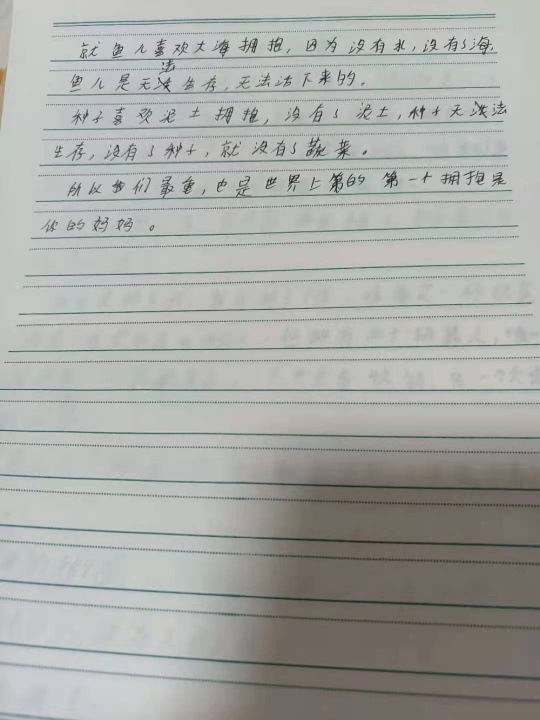 就鱼儿喜欢大海拥抱，因为没有水，没有了海，
鱼儿是无法生存，无法活下来的。
种子喜欢泥土拥抱，没有了泥土，种子无法
生存，没有了种子，就没有了蔬菜。
所以我们最重，也是世界上第的第一个拥抱是
你的妈妈。